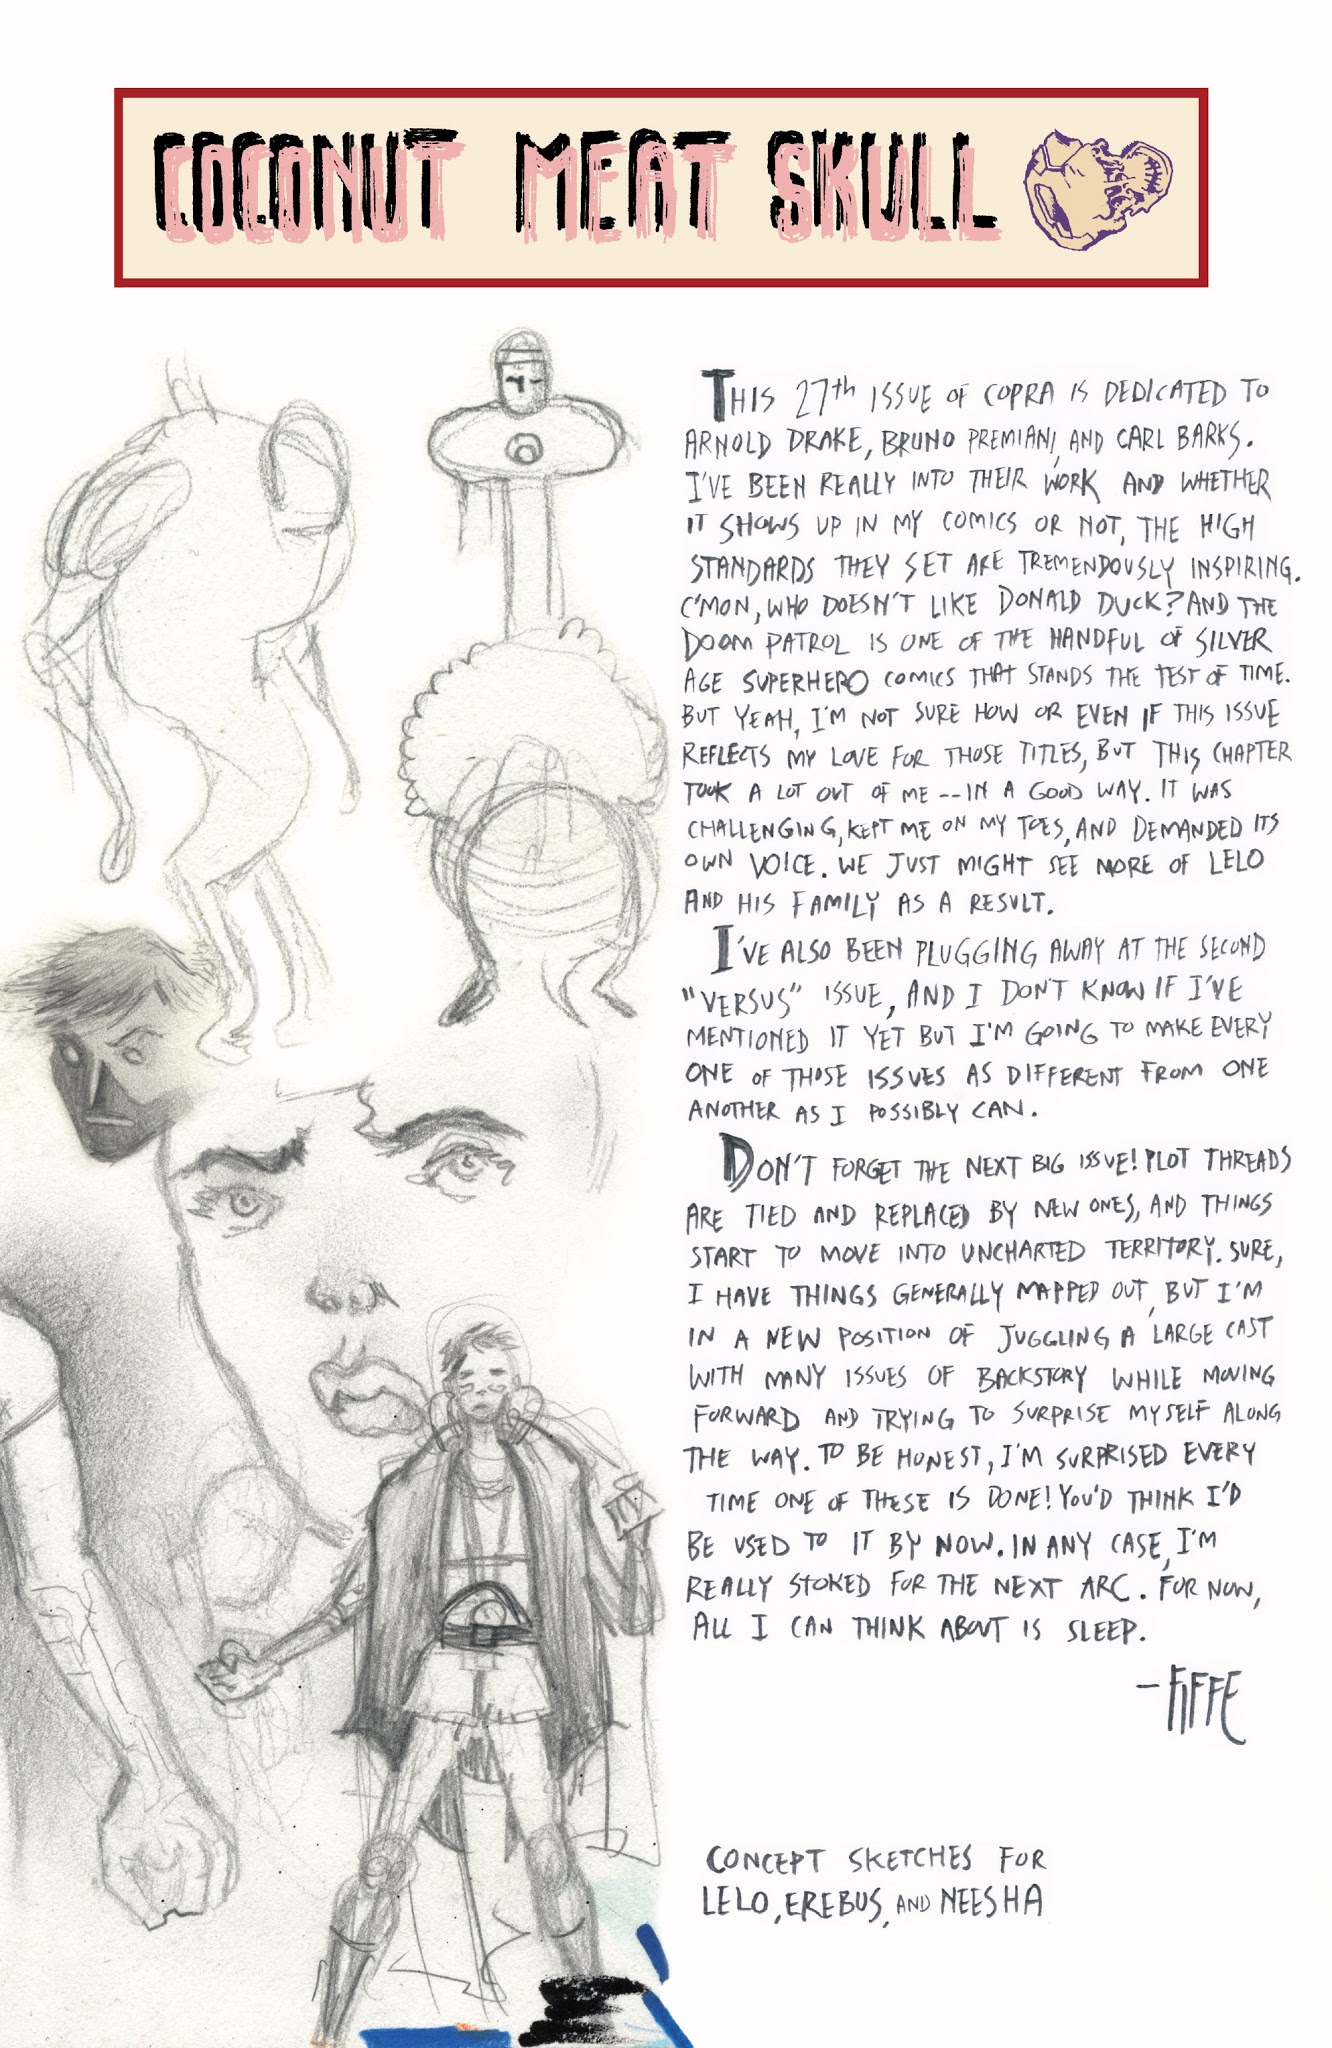 COCONUT MEAT SKULL
THIS 27th ISSUE OF COPRA IS DEDICATED TO
ARNOLD DRAKE, BRUNO PREMIANI, AND CARL BARKS.
I'VE BEEN REALLY INTO THEIR WORK AND WHETHER
IT SHOWS UP IN MY COMICS OR NOT, THE HIGH
STANDARDS THEY SET ARE TREMENDOUSLY INSPIRING.
C'MON, WHO DOESN'T LIKE DONALD DUCK? AND THE
DOOM PATROL IS ONE OF THE HANDFUL OF SILVER
AGE SUPERHERO COMICS THAT STANDS THE TEST OF TIME.
BUT YEAH, I'M NOT SURE HOW OR EVEN IF THIS ISSUE
REFLECTS MY LOVE FOR THOSE TITLES, BUT THIS CHAPTER
TOOK A LOT OUT OF ME -- IN A GOOD WAY. IT WAS
CHALLENGING, KEPT ME ON MY TOES, AND DEMANDED ITS
OWN VOICE. WE JUST MIGHT SEE MORE OF LELO
AND HIS FAMILY AS A RESULT.
I'VE ALSO BEEN PLUGGING AWAY AT THE SECOND
"VERSUS" ISSUE, AND I DON'T KNOW IF I'VE
MENTIONED IT YET BUT I'M GOING TO MAKE EVERY
ONE OF THOSE ISSUES AS DIFFERENT FROM ONE
ANOTHER AS I POSSIBLY CAN.
DON'T FORGET THE NEXT BIG ISSUE! PLOT THREADS
ARE TIED AND REPLACED BY NEW ONES, AND THINGS
START TO MOVE INTO UNCHARTED TERRITORY. SURE,
I HAVE THINGS GENERALLY MAPPED OUT, BUT I'M
IN A NEW POSITION OF JUGGLING A LARGE CAST
WITH MANY ISSUES OF BACKSTORY WHILE MOVING
FORWARD AND TRYING TO SURPRISE MYSELF ALONG
THE WAY. TO BE HONEST, I'M SURPRISED EVERY
TIME ONE OF THESE IS DONE! YOU'D THINK I'D
BE USED TO IT BY NOW. IN ANY CASE, I'M
REALLY STOKED FOR THE NEXT ARC. FOR NOW,
ALL I CAN THINK ABOUT IS SLEEP.
— FIFFE
CONCEPT SKETCHES FOR
LELO, EREBUS, AND NEESHA